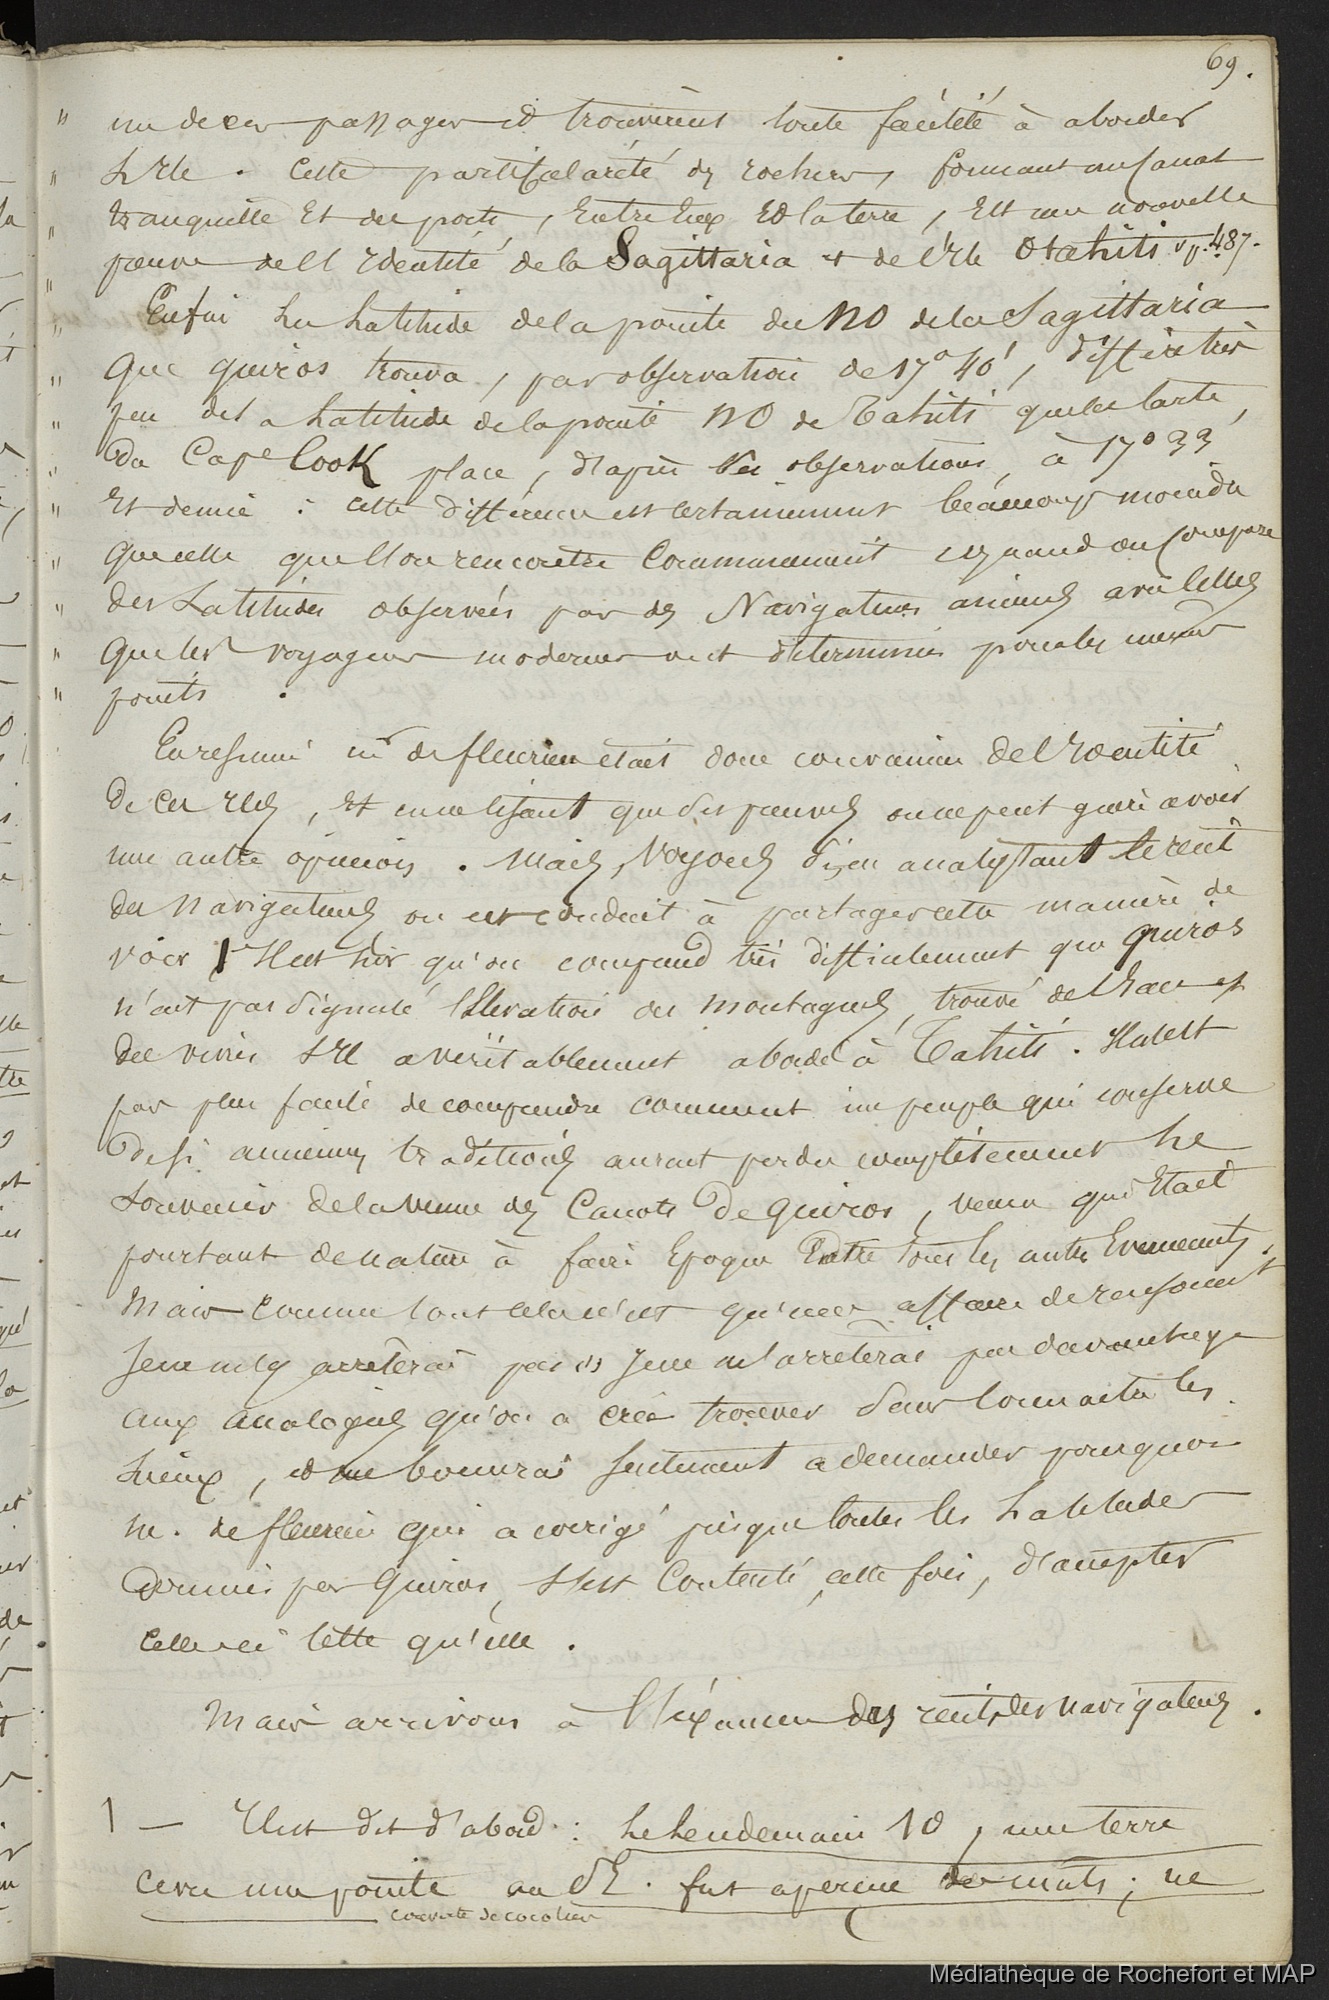 69.
" un de ces passages et trouvèrent toute facilité à aborder
" L'Ile. Cette particularité des rochers, formant un canal
" tranquille Et des ports, Entre Eux Et la terre, Est une nouvelle
" preuve de l'Identité de la Sagittaria & de l'Ile Otahiti v. p. 487.
" Enfin La Latitude de la pointe du NO de la Sagittaria
" Que Quiros trouva, par observation de 17° 40', diffère très
" peu de la Latitude de la pointe NO de Tahiti que la Carte,
" Du Cape Cook place, d'après Ses observations, à 17° 33'
" Et demie : cette différence est certainement beaucoup moindre
" Que celle que l'on rencontre Communément quand on compare
" Des Latitudes observées par des Navigateurs anciens avec celles
" Que les voyageurs modernes ont déterminées pour les mêmes
" points.
En résumé Mr de fleurieu était donc convaincu de l'Identité
De ces Iles, Et en ne lisant que ses preuves on ne peut guère avoir
une autre opinion. Mais, Voyons si, en analysant le récit
des Navigateurs on est conduit à partager cette manière de
voir. Il est sûr qu'on comprend très difficilement que Quiros
n'ait pas signalé l'Elévation des montagnes, trouvé de l'Eau et
des vivres S'Il a véritablement abordé à Tahiti. Il n'est
pas plus facile de comprendre comment un peuple qui conserve
De si anciennes traditions aurait perdu complètement Le
Souvenir de la venue des Canots De Quiros, venue qui Etait
pourtant de nature à faire Epoque Entre tous les autres Evènements.
Mais comme tout cela n'est qu'une affaire de raisonnement
Je ne m'y arrêterai pas Je ne m'arrêterai pas davantage
aux analogies qu'on a cru trouver Sans connaître les
Lieux, et me bornerai Seulement à demander pourquoi
M. de fleurieu qui a corrigé presque toutes les Latitudes
Données par Quiros, S'est Contenté, cette fois, d'accepter
Celle-ci telle qu'elle.
Mais arrivons à l'Examen des récits des Navigateurs.
1 — Il est dit d'abord : Le Lendemain 10, une terre
avec une pointe au SE. fut aperçue des mâts ; ne
couverte de cocotiers
Médiathèque de Rochefort et MAP